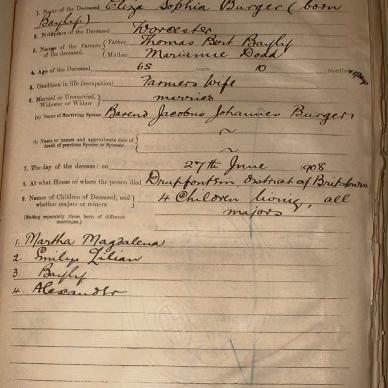 1. Name of the Deceased Eliza Sophia Burger (born
Bayly)
2. Birthplace of the Deceased Worcester
3. Names of the Parents of the deceased. { Father, Thomas Bert Bayly
Mother Marianne Dodd
4. Age of the Deceased 65 years 10 months days
5. Condition in life (occupation) Farmers Wife
6. Married or Unmarried, Widower or Widow } married
(a) Name of Surviving Spouse Barend Jacobus Johannes Burger
(b) Name or names and approximate date of death of previous Spouse or Spouses } ~
~
7. The day of the decease: on 27th June 1908
8. At what House or where the person died Drupfontein District of Britstown
9. Names of Children of Deceased, and whether majors or minors 4 Children living, all
(Stating separately those born of different marriages.) majors
1. Martha Magdalena
2. Emily Lilian
3. Bayly
4. Alexander